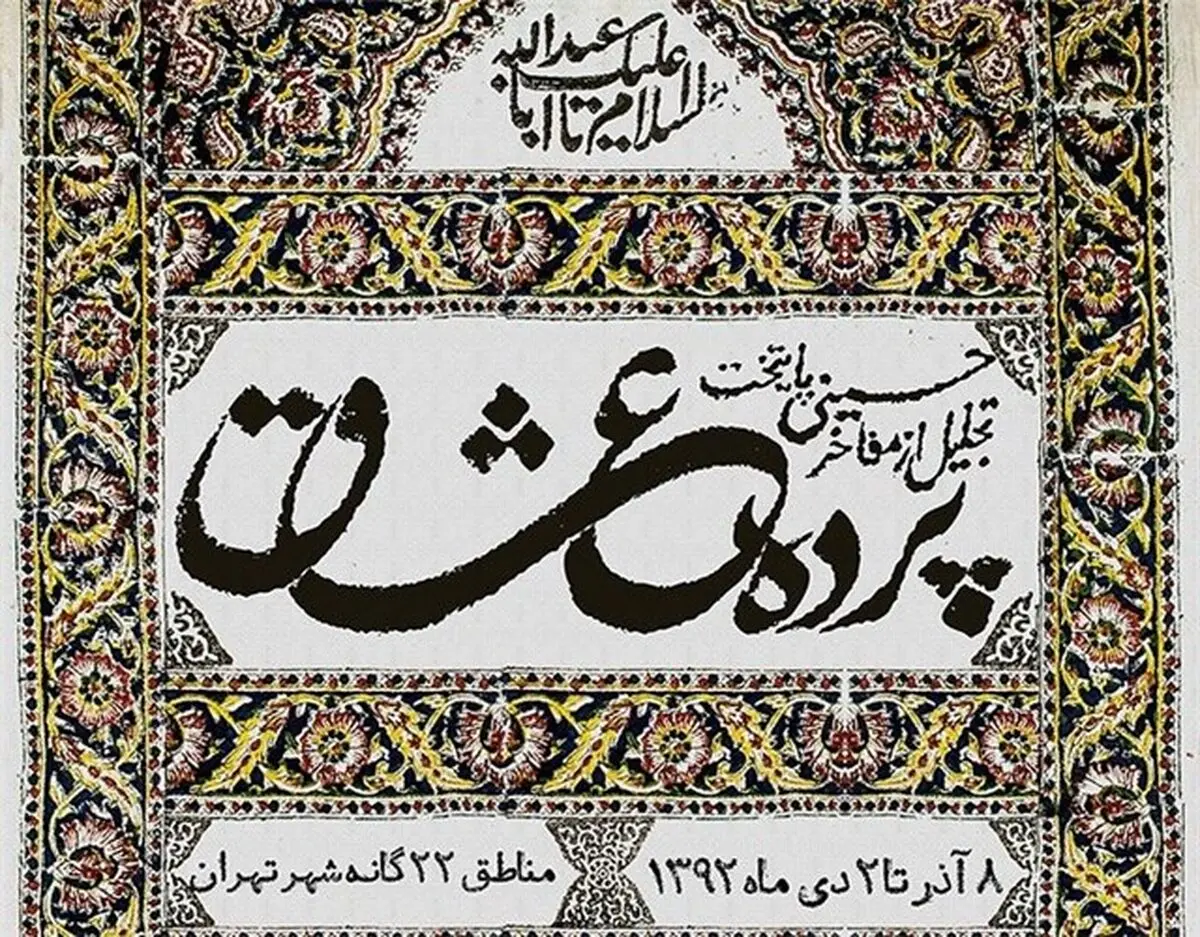 السلام علیک یا ابا عبدالله
تجلیل از مفاخر
حسینی پایتخت
پرده عشاق
۸ آذر تا ۲ دی ماه ۱۳۹۲
مناطق ۲۲ گانه شهر تهران